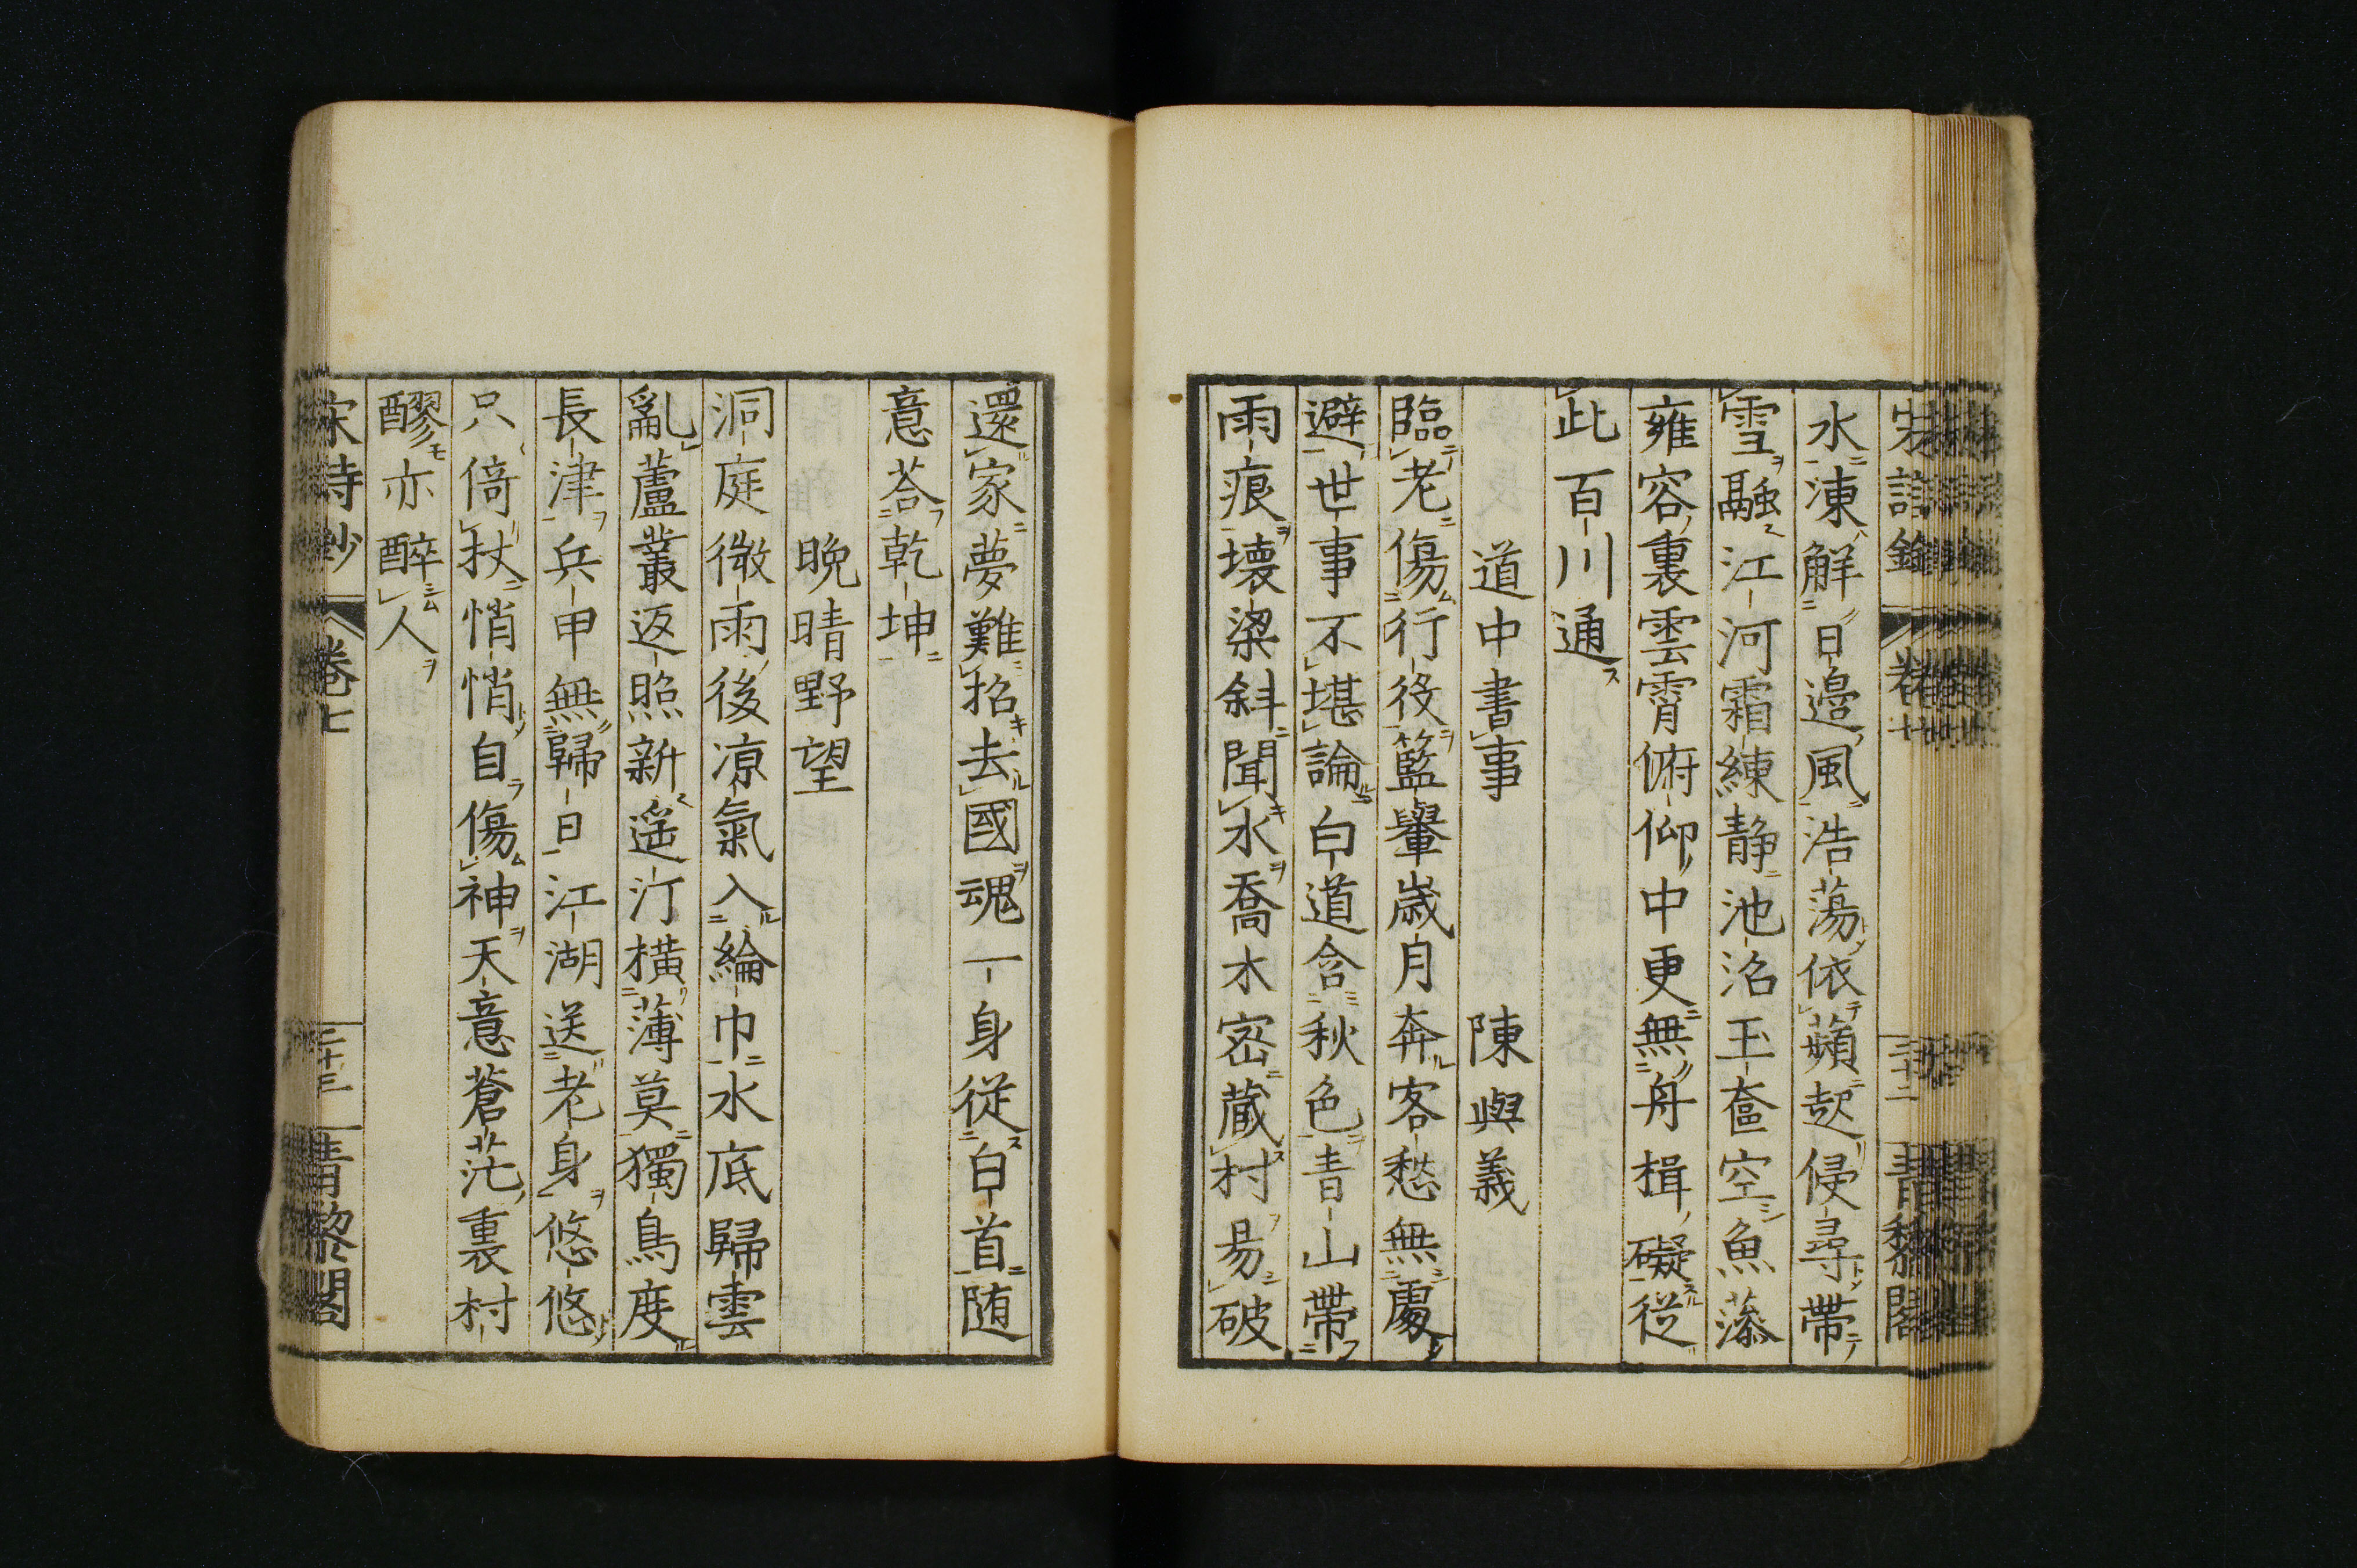 水凍解日邊風浩蕩依蘋起侵尋帶
雪融江河霜練静池沼玉奩空魚藻
雍容裏雲霄俯仰中更無舟楫礙從
此百川通
道中書事 陳與義
臨老傷行役籃轝歳月奔客愁無處
避世事不堪論白道含秋色青山帶
雨痕壊梁斜聞水喬木密藏村易破
還家夢難招去國魂一身従白首随
意荅乾坤
晩晴野望
洞庭微雨後凉氣入綸巾水底歸雲
亂蘆叢返照新遥汀橫薄莫獨鳥度
長津兵甲無歸日江湖送老身悠悠
只倚杖悄悄自傷神天意蒼茫裏村
醪亦醉人
宋詩鈔 卷七 三十三 青黎閣